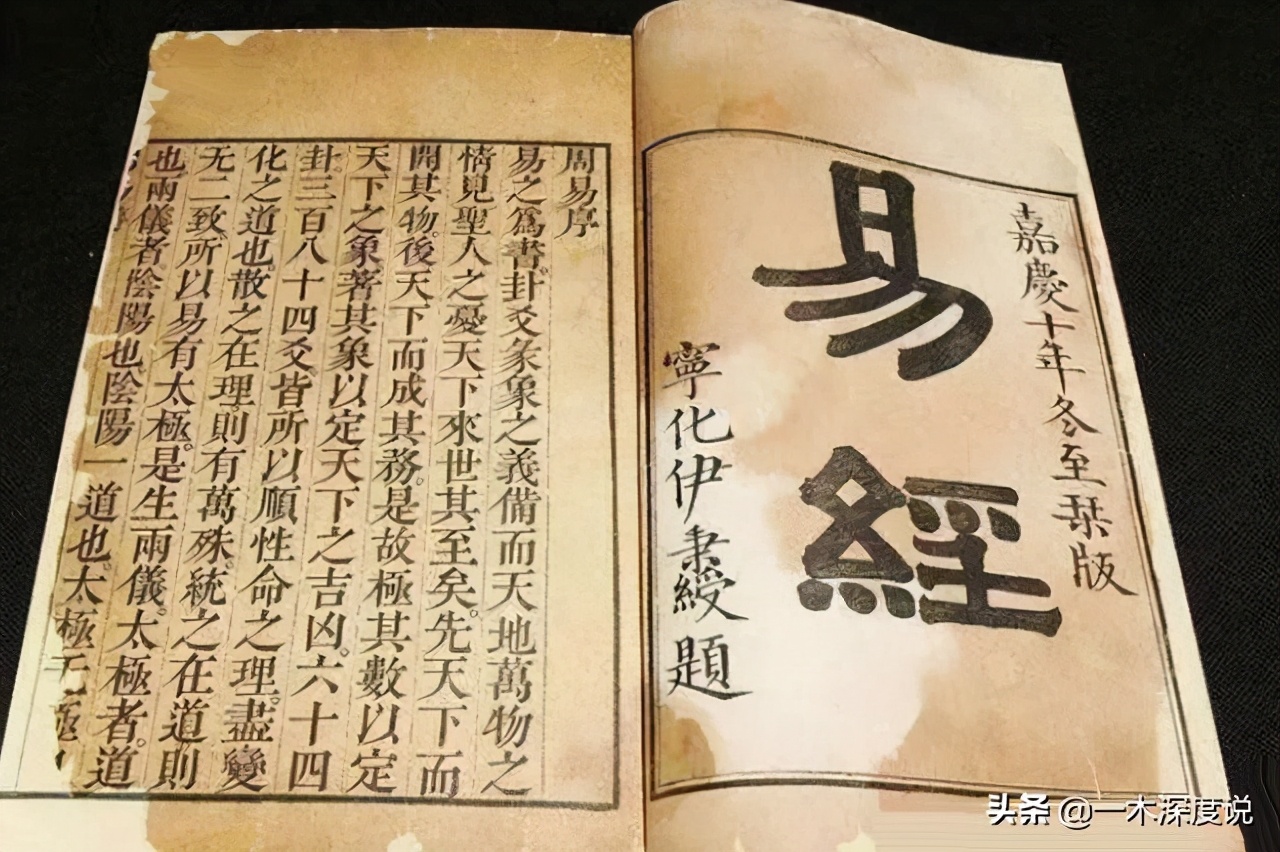 嘉慶十年冬至栞版
易經
寧化伊秉綬題
周易序
易之爲書。卦爻彖象之義備而天地萬物之
情見聖人之憂天下來世其至矣。先天下而
開其物。後天下而成其務。是故極其數以定
天下之象著其象以定天下之吉凶。六十四
卦。三百八十四爻。皆所以順性命之理。盡變
化之道也。散之在理。則有萬殊。統之在道則
无二致。所以易有太極。是生兩儀。太極者。道
也兩儀者陰陽也。陰陽一道也。太極无極
头条 @一木深度说